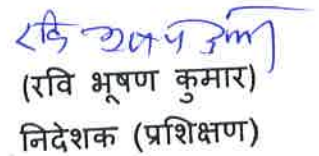 रवि भूषण कुमार
(रवि भूषण कुमार)
निदेशक (प्रशिक्षण)